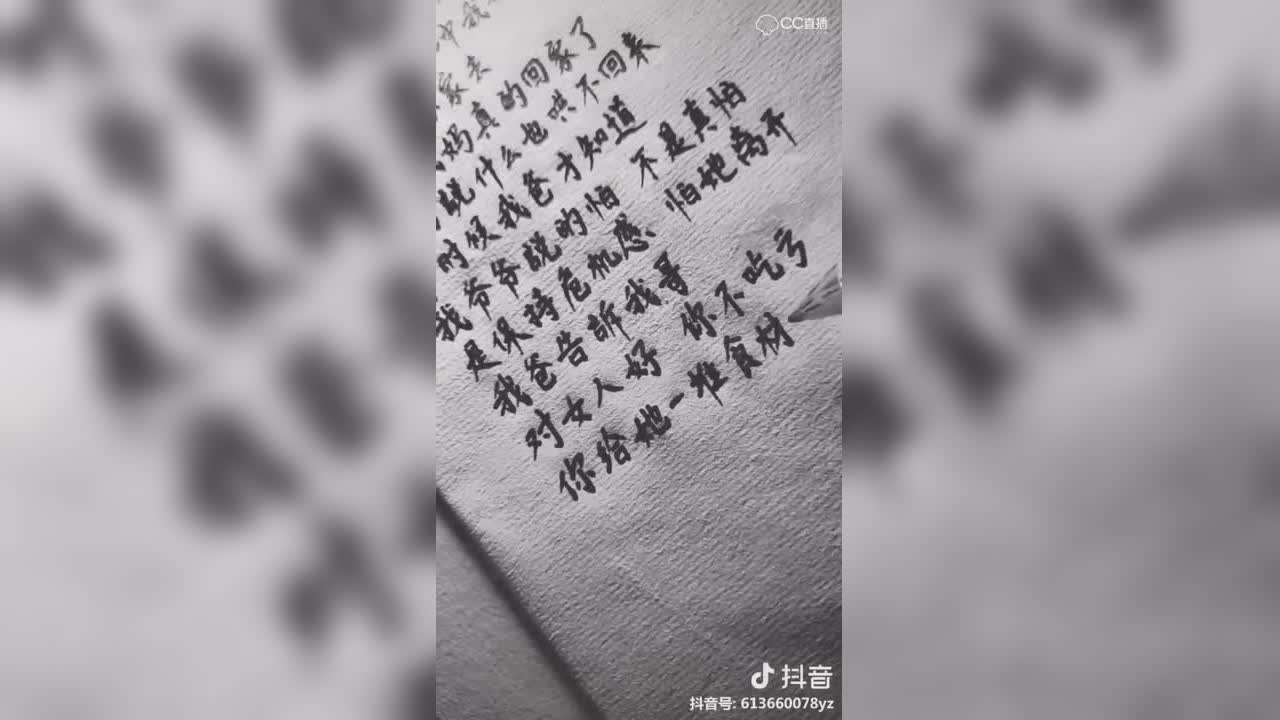 家去
妈真的回家了
说什么也哄不回来
时候我爸才知道
我爷爷说的怕 不是真怕
是保持危机感 怕她离开
我爸告诉我哥
对女人好 你不吃亏
你给她一堆食材
CC直播
抖音
抖音号: 613660078yz